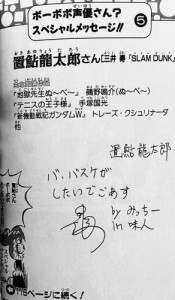 ボーボボ声優さん?
スペシャルメッセージ!!
5
置鮎龍太郎さん
(三井寿『SLAM DUNK』
『地獄先生ぬ〜べ〜』鵺野鳴介(ぬ〜べ〜)
『テニスの王子様』手塚国光
『新機動戦記ガンダムW』トレーズ・クシュリナーダ
他
置鮎龍太郎
バ、バスケが
したいでごあす
by みっちー
in 味人
ページに続く!